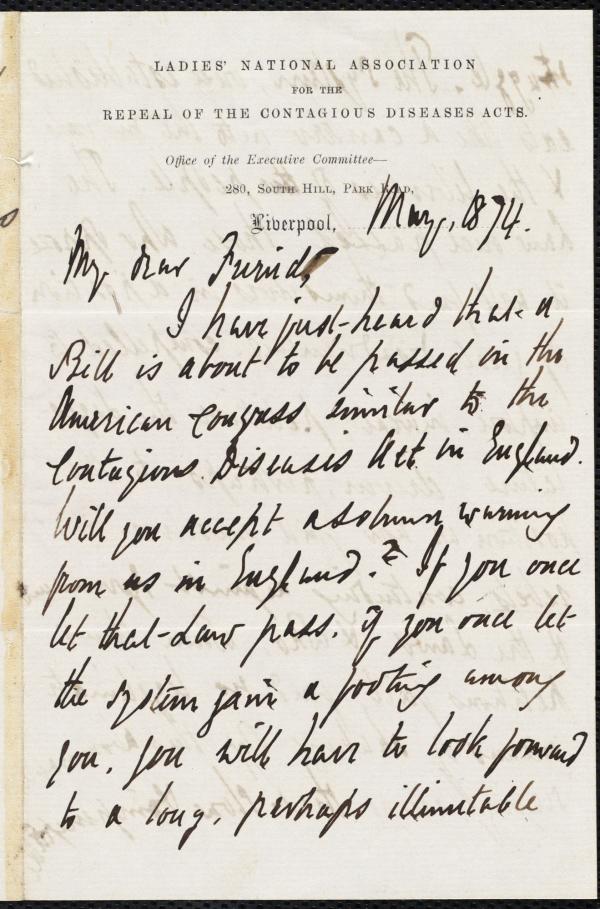 LADIES' NATIONAL ASSOCIATION
FOR THE
REPEAL OF THE CONTAGIOUS DISEASES ACTS.
Office of the Executive Committee—
280, South Hill, Park Road,
Liverpool, May, 1874.
My dear Friend,
I have just heard that a
Bill is about to be passed in the
American Congress similar to the
Contagious Diseases Act in England.
Will you accept a solemn warning
from us in England? If you once
let that Law pass, if you once let
the system gain a footing among
you, you will have to look forward
to a long, perhaps illimitable